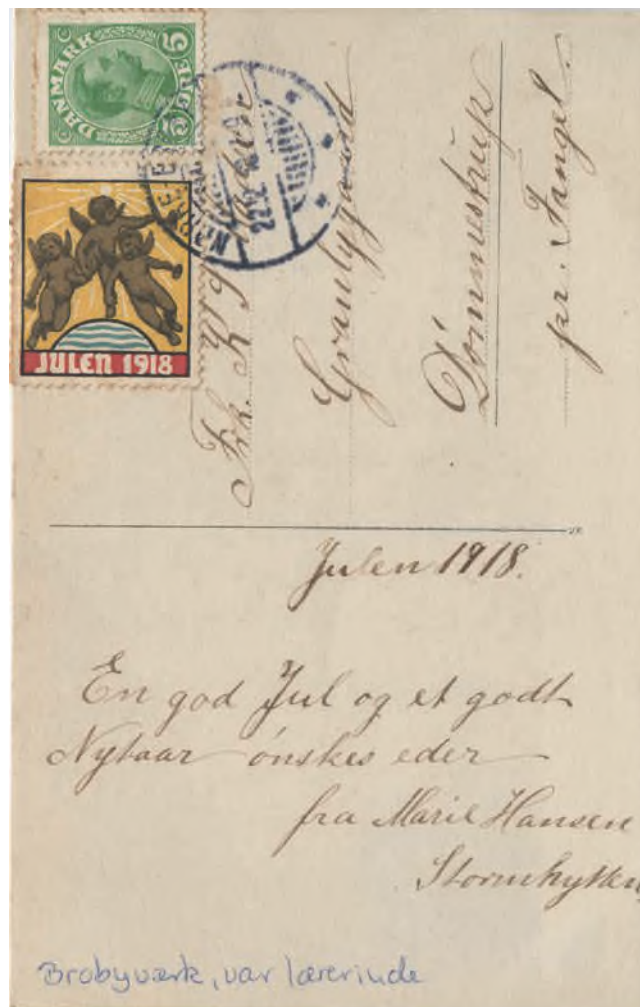 DANMARK
5 ØRE
JULEN 1918
Frk. K.
Granlygaard
Dömmestrup
pr. Fangel.
Julen 1918.
En god Jul og et godt
Nytaar önskes eder
fra Marie Hansen
Stormhytten
Brobyværk, var lærerinde